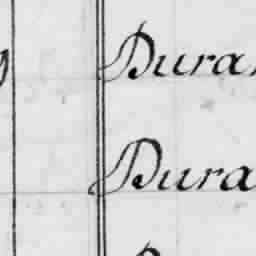 Dura
Dura